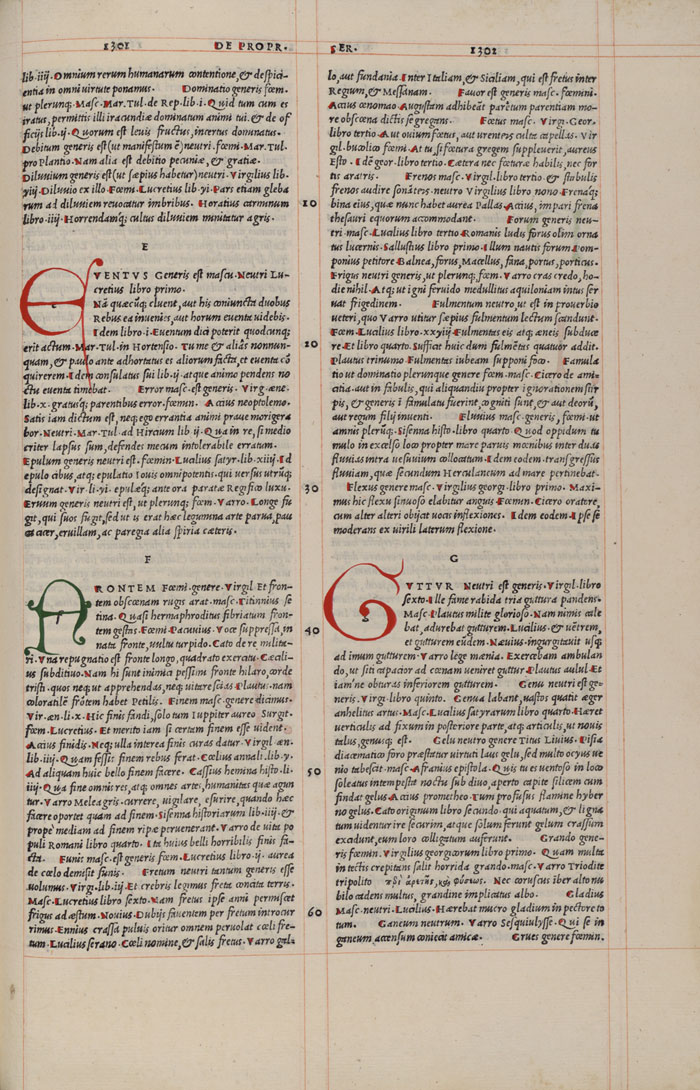 1301 DE PROPR.
lib.iiij.Omnium rerum humanarum contentione,& despici-
entia in omni uirtute ponamus. Dominatio generis fœm.
ut plerunq;.Masc.Mar.Tul.de Rep.lib.i.Quid tum cum es
iratus,permittis illi iracundiæ dominatum animi tui.& de of
ficijs lib.ij.Quorum est leuis fructus,incertus dominatus.
Debitum generis est(ut manifestum ē)neutri.fœmi.Mar.Tul.
pro Plantio.Nam alia est debitio pecuniæ,& gratiæ.
Diluuium generis est(ut sæpius habetur)neutri.Virgilius lib.
yij.Diluuio ex illo.Fœmi.Lucretius lib.yi.Pars etiam gleba
rum ad diluuiem reuocatur imbribus.Horatius carminum
libro.iiij.Horrendamq; cultus diluuiem minitatur agris.
E
EVENTVS Generis est mascu.Neutri Lu-
cretius libro primo.
Nā quæcūq; cluent,aut his coniuncta duobus
Rebus ea inuenies,aut horum euenta uidebis.
Idem libro.i.Euentum dici poterit quodcunq;
erit actum.Mar.Tul.in Hortensio.Tu me & aliâs nonnun-
quam,& paulo ante adhortatus es aliorum facta,et euenta cō
quirerem.Idem consulatus sui lib.ij.atque animo pendens no
ctu euenta timebat. Error masc.est generis.Virg.æne.
lib.x.gratiusq; parentibus error.fœmin.Acius neoptolemo.
Satis iam dictum est,neq; ego errantia animi praue morigera
bor.Neutri.Mar.Tul.ad Hircium lib.ij.Qua in re,si medio
criter lapsus sum,defendes meum intolerabile erratum.
Epulum generis neutri est.fœmin.Lucilius satyr.lib.xiij.Id
epulo cibus,atq; epulatio Iouis omnipotentis.qui uersus utrūq;
designat.Vir.li.yi.epulæq; ante ora paratæ Regifico luxu.
Eruum generis neutri est,ut plerunq; fœm.Varro.Longe fu
git,qui suos fugit,sed ut is erat hæc legumina arte parua,pau
ca cicer,eruillam,ac paregia alia spiria cæteris.
F
FRONTEM Fœmi.genere.Virgil.Et fron-
tem obscœnam rugis arat.masc.Titinnius se
tina.Quasi hermaphroditus fibriatum fron-
tem gestas.Fœmi.Pacuuius.Voce suppressa,m
nata fronte,uultu turpido.Cato de re milita-
ri.Vna repugnatio est fronte longo,quadrato exercitu.Cæcili-
us subditiuo.Nam hi sunt inimici pessimi fronte hilaro,corde
tristi.quos neq; ut apprehendas,neq; uitare scias.Plautus.nam
coloratilē frōtem habet Petilis. Finem masc.genere dicimus.
Vir.æn.li.x.Hic finis fandi,solo tum Iuppiter aureo Surgit.
fœm.Lucretius.Et merito iam si certam finem esse uident.
Acius finidis.Neq; ulla interea finis curas datur.Virgil.æn.
lib.iij.Quam fessis finem rebus ferat.Cœlius annali.lib.y.
Ad aliquam huic bello finem facere. Cassius hemina histo.li.
iiij.Qua fine omnis res,atq; omnes artes,humanitus quæ agun
tur.Varro Meleagris.currere,uigilare,esurire,quando hæc
facere oportet quam ad finem.Sisenna historiarum lib.iiij.&
prope mediam ad finem ripæ peruenerant.Varro de uita po
puli Romani libro quarto. Ita huius belli horribilis finis fa-
cta. Funis masc.est generis fœm.Lucretius libro.ij.aurea
de cœlo demisit funis. Fretum neutri tantum generis esse
uolumus.Virg.lib.iij.Et crebris legimus freta concita terris.
Masc.Lucretius libro sexto.Nam fretus ipse anni permiscet
frigus ad æstum.Nouius.Dubijs fauentem per fretum introcur
rimus.Ennius crassa puluis oritur omnem peruolat cœli fre-
tum.Lucilius serano.Cœli nomine,& salis fretus.Varro gal-
10
20
30
40
50
60
PER. 1302
lo,aut fundania.Inter Italiam,& Siciliam,qui est fretus inter
Regium,& Messanam. Fauor est generis masc.fœmini.
Acius œnomao Augustam adhibeāt pariētum parentiam mo-
re obscœna dictis segregens. Fœtus masc.Virg.Geor.
libro tertio.Aut ouium fœtus,aut urenteis culta capellas.Vir
gil.bucolico fœmi.At tu,si fœtura gregem suppleuerit,aureus
Esto.Idē geor.libro tertio.Cætera nec fœturæ habilis,nec for
tis aratris. Frenos masc.Virgil.libro tertio.& stabulis
frenos audire sonāteis.neutro Virgilius libro nono.Frenaq;
bina eius,quæ nunc habet aurea Pallas.Acius,impari frena
thesauri equorum accommodant. Forum generis neu-
tri.masc.Lucilius libro tertio.Romanis ludis forus olim orna
tus lucernis.Sallustius libro primo.Illum nautis forum.Pom-
ponius petitore.Balnea,forus,Macellus,fana,portus,porticus.
Frigus neutri generis,ut plerunq; fœm.Varro cras credo,ho-
die nihil.Atq; ut igni feruido medullitus aquiloniam intus ser
uat frigedinem. Fulmentum neutro,ut est in prouerbio
ueteri,quo Varro utitur sæpius fulmentum lectum scandunt.
Fœm.Lucilius libro.xxyiij.Fulmentas eis atq; æneis subduce
re.Et libro quarto.Suffice huic dum fulmētas quatuor addit.
Plautus trinumo.Fulmentas iubeam supponi foco. Famula
tio ut dominatio plerunque genere fœm.Cicero de ami-
citia.aut in fabulis,qui aliquandiu propter ignorationem stir
pis,& generis ī famulatu fuerint,cogniti sunt,& aut deorū,
aut regum filij inuenti. Fluuius masc.generis,fœmi.ut
amnis plerūq;.Sisenna histo.libro quarto.Quod oppidum tu
mulo in excelso loco propter mare paruis mœnibus inter duas
fluuias intra uesuuium collocatum.Idem eodem.transgressus
fluuiam,quæ secundum Herculaneum ad mare pertinebat.
Flexus genere masc.Virgilius georgi.libro primo.Maxi-
mus hic flexu sinuoso elabitur anguis.Fœmin.Cicero oratore,
cum alter alteri obijcit uocis inflexiones.Idem eodem.Ipse se
moderans ex uirili laterum flexione.
G
GVTTVR Neutri est generis.Virgil.libro
sexto.Ille fame rabida tria guttura pandens.
Masc.Plautus milite glorioso.Nam nimis cale
bat,adurebat gutturem.Lucilius.& uētrem,
et gutturem eudem.Næuius.ingurgitauit usq;
ad imum gutturem.Varro lege mænia.Exercebam ambulan
do,ut siti capacior ad cœnam ueniret guttur.Plautus aulul.Et
iam'ne obturas inferiorem gutturem. Genu neutri est ge-
neris.Virg.libro quinto.Genua labant,uastos quatit æger
anhelitus artus.Masc.Lucilius satyrarum libro quarto.Hæret
uerticulis ad fixum in posteriore parte,atq; articulis,ut nouis
talus,genusq; est. Gelu neutro genere Titus Liuius.Pisia
diacæmatico foro præstatur uirtuti laus gelu,sed multo ocyus ue
nio tabescit.masc.Aframius epistola.Quis tu es uentoso in loco
soleatus intempesta noctu sub diuo,aperto capite silicem cum
findat gelus.Acius prometheo.tum profusus flamine hyber
no gelus.Cato originum libro secundo.qui aquatum,& ligna
tum uidentur ire securim,atque solum ferunt gelum crassum
excidunt,eum loro colligatum auferunt. Grando gene-
ris fœmin.Virgilius georgicorum libro primo.Quam multa
in tectis crepitans salit horrida grando.masc.Varro Triodite
tripolito Nec coruscus iber alto nu
bilo cadens multus,grandine implicatus albo. Gladius
Masc.neutri.Lucilius.Hærebat mucro gladium in pectore to
tum. Ganeum neutrum.Varro Sesquiulysse.Qui se in
ganeum accensum coniecit amicæ. Grues genere fœmin.